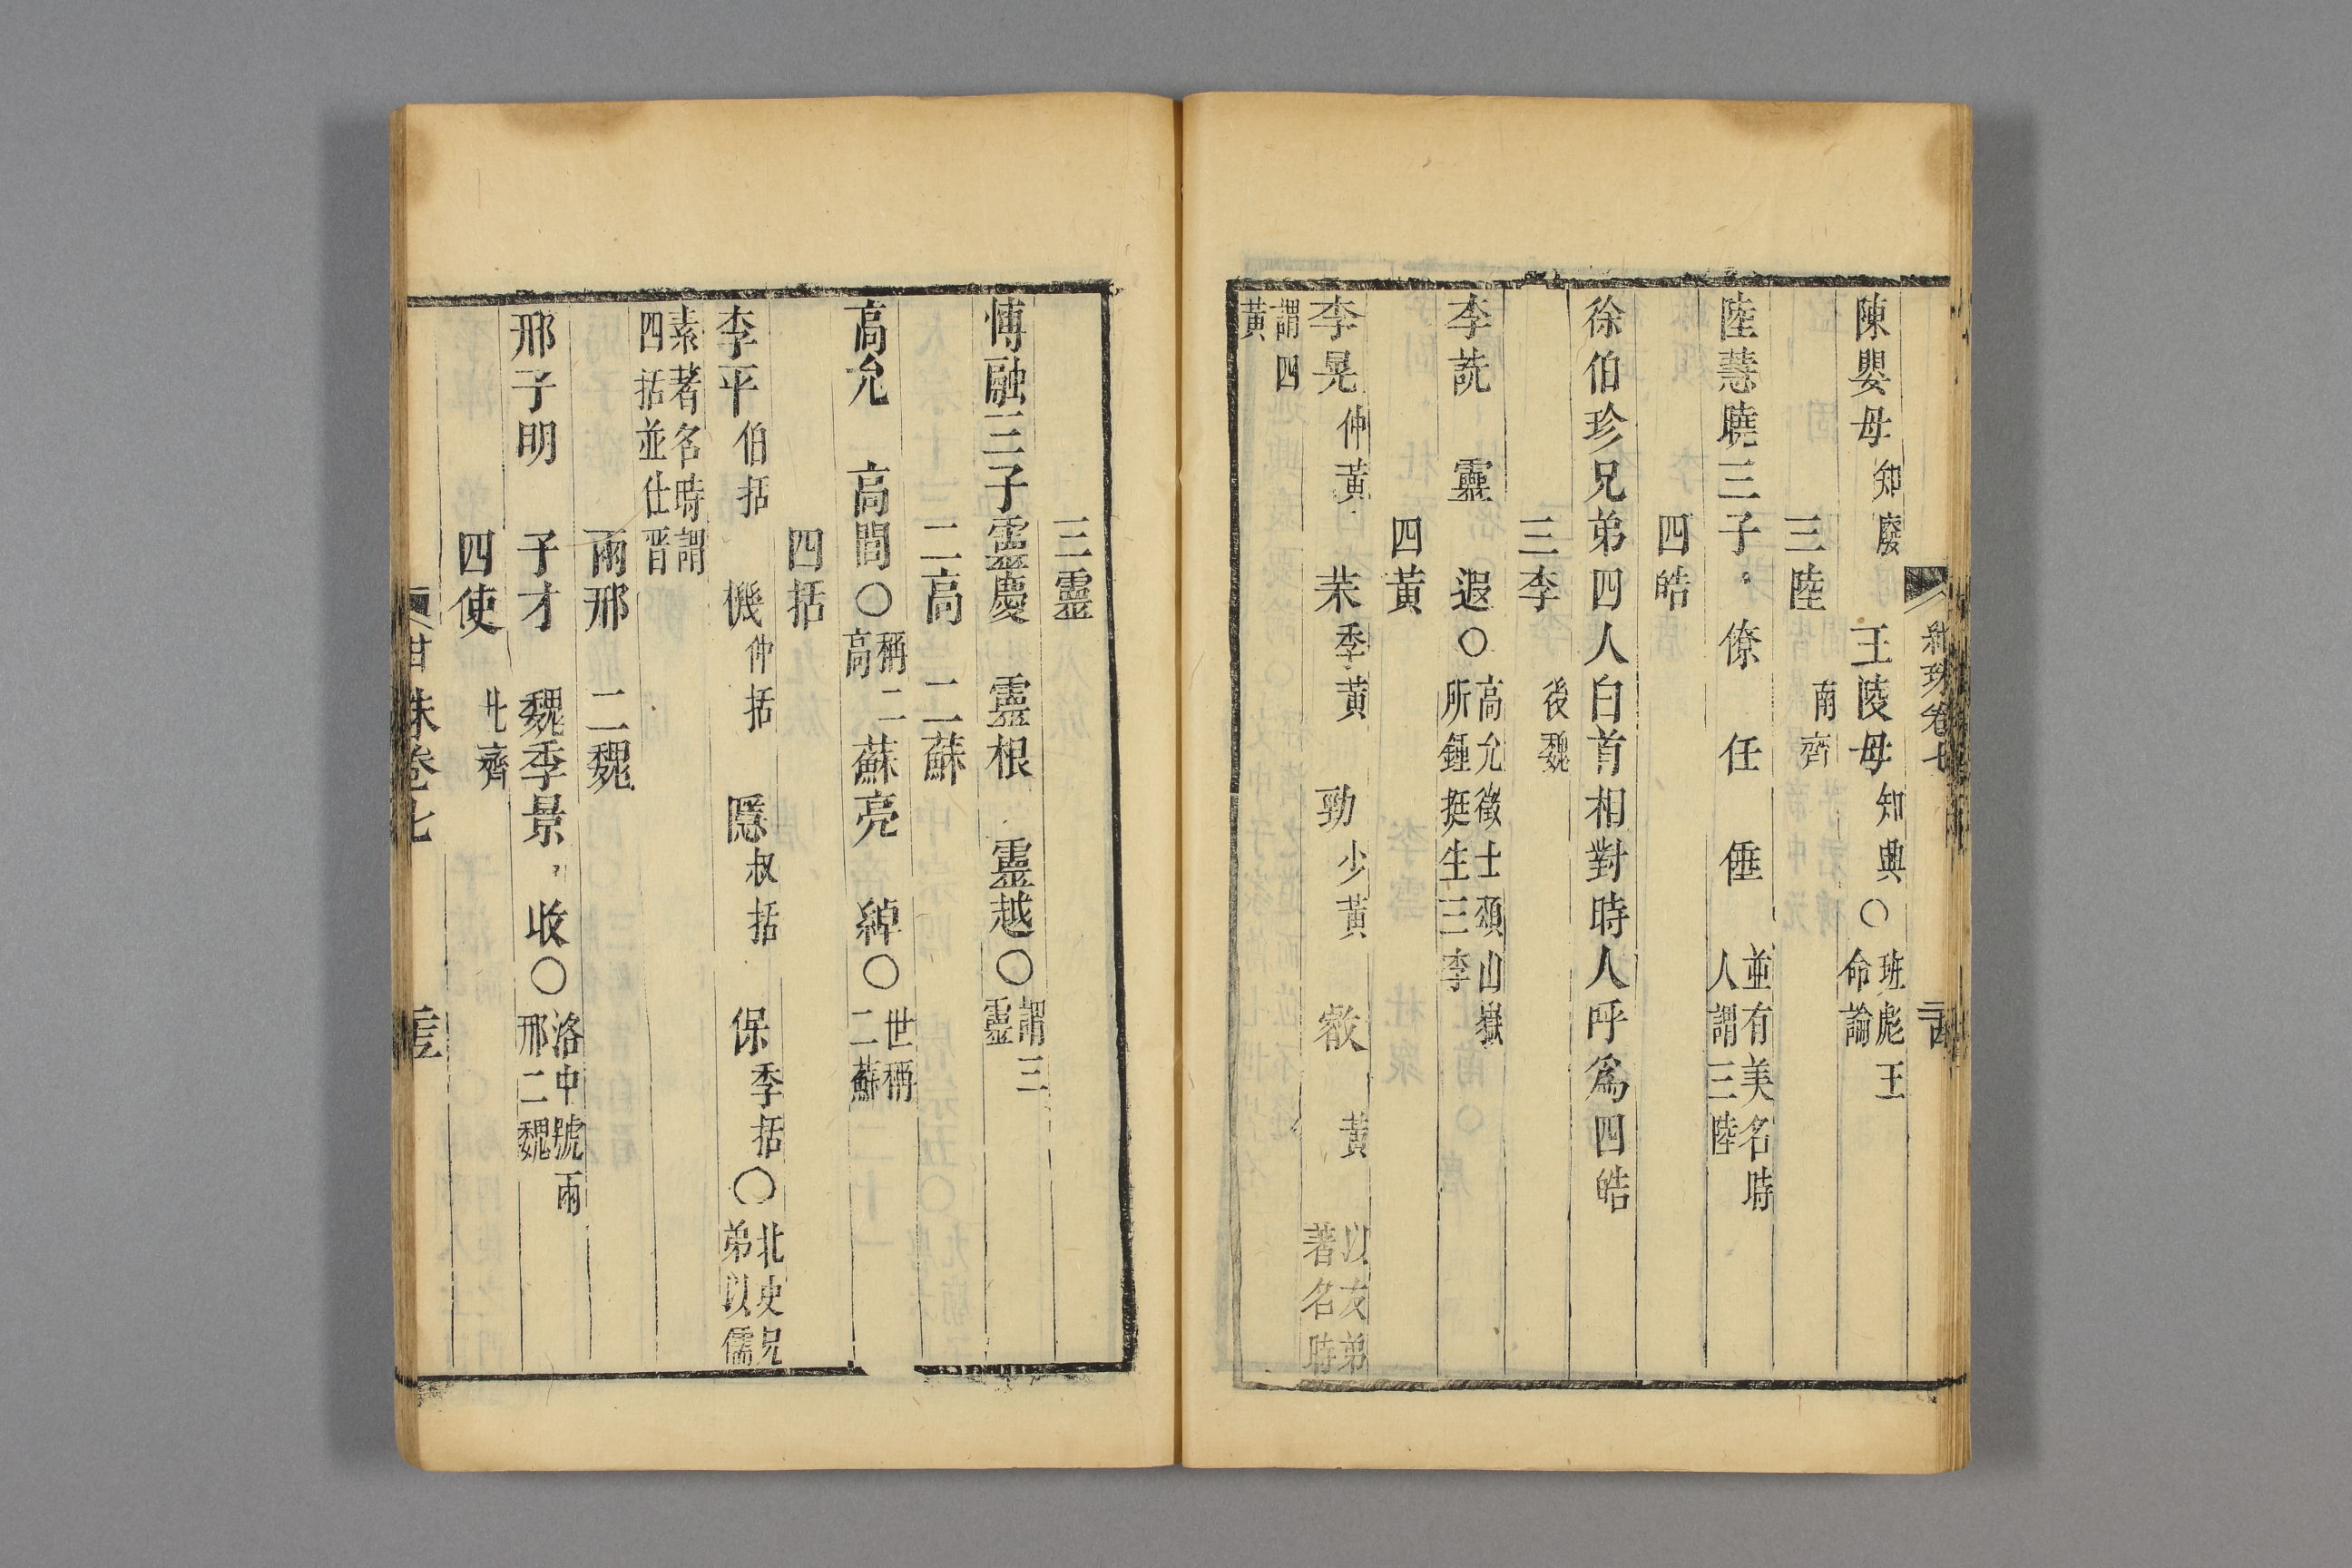 紺珠卷七
陳嬰母知廢 王陵母知典○班彪王命論
三陸 南齊
陸慧曉三子 僚 任 倕 並有美名時人謂三陸
四皓
徐伯珍兄弟四人白首相對時人呼為四皓
三李 後魏
李詵 靈 遐○高允徵士頌山嶽所鍾挺生三李
四黃
李晃仲黃 茉季黃 勁少黃 叡 黃 以友弟著名時
謂四黃
三靈
傅融三子靈慶 靈根 靈越○謂三靈
二高 二蘇
高允 高閭○稱二高 蘇亮 綽○世稱二蘇
四括
李平伯括 機仲括 隱叔括 保季括○北史兄弟以儒
素著名時謂四括並仕晋
兩邢 二魏
邢子明 子才 魏季景 收○洛中號兩邢二魏
四使 北齊
珠卷七